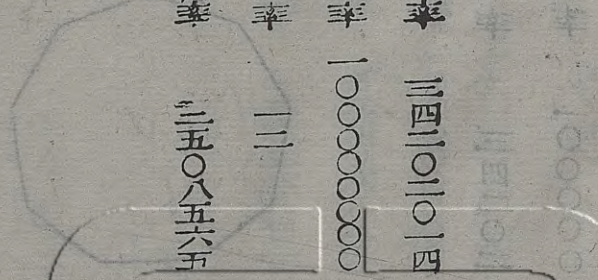 率 三四二〇二〇一四
率 一〇〇〇〇〇〇〇〇
率 一二
率 三五〇八五六五